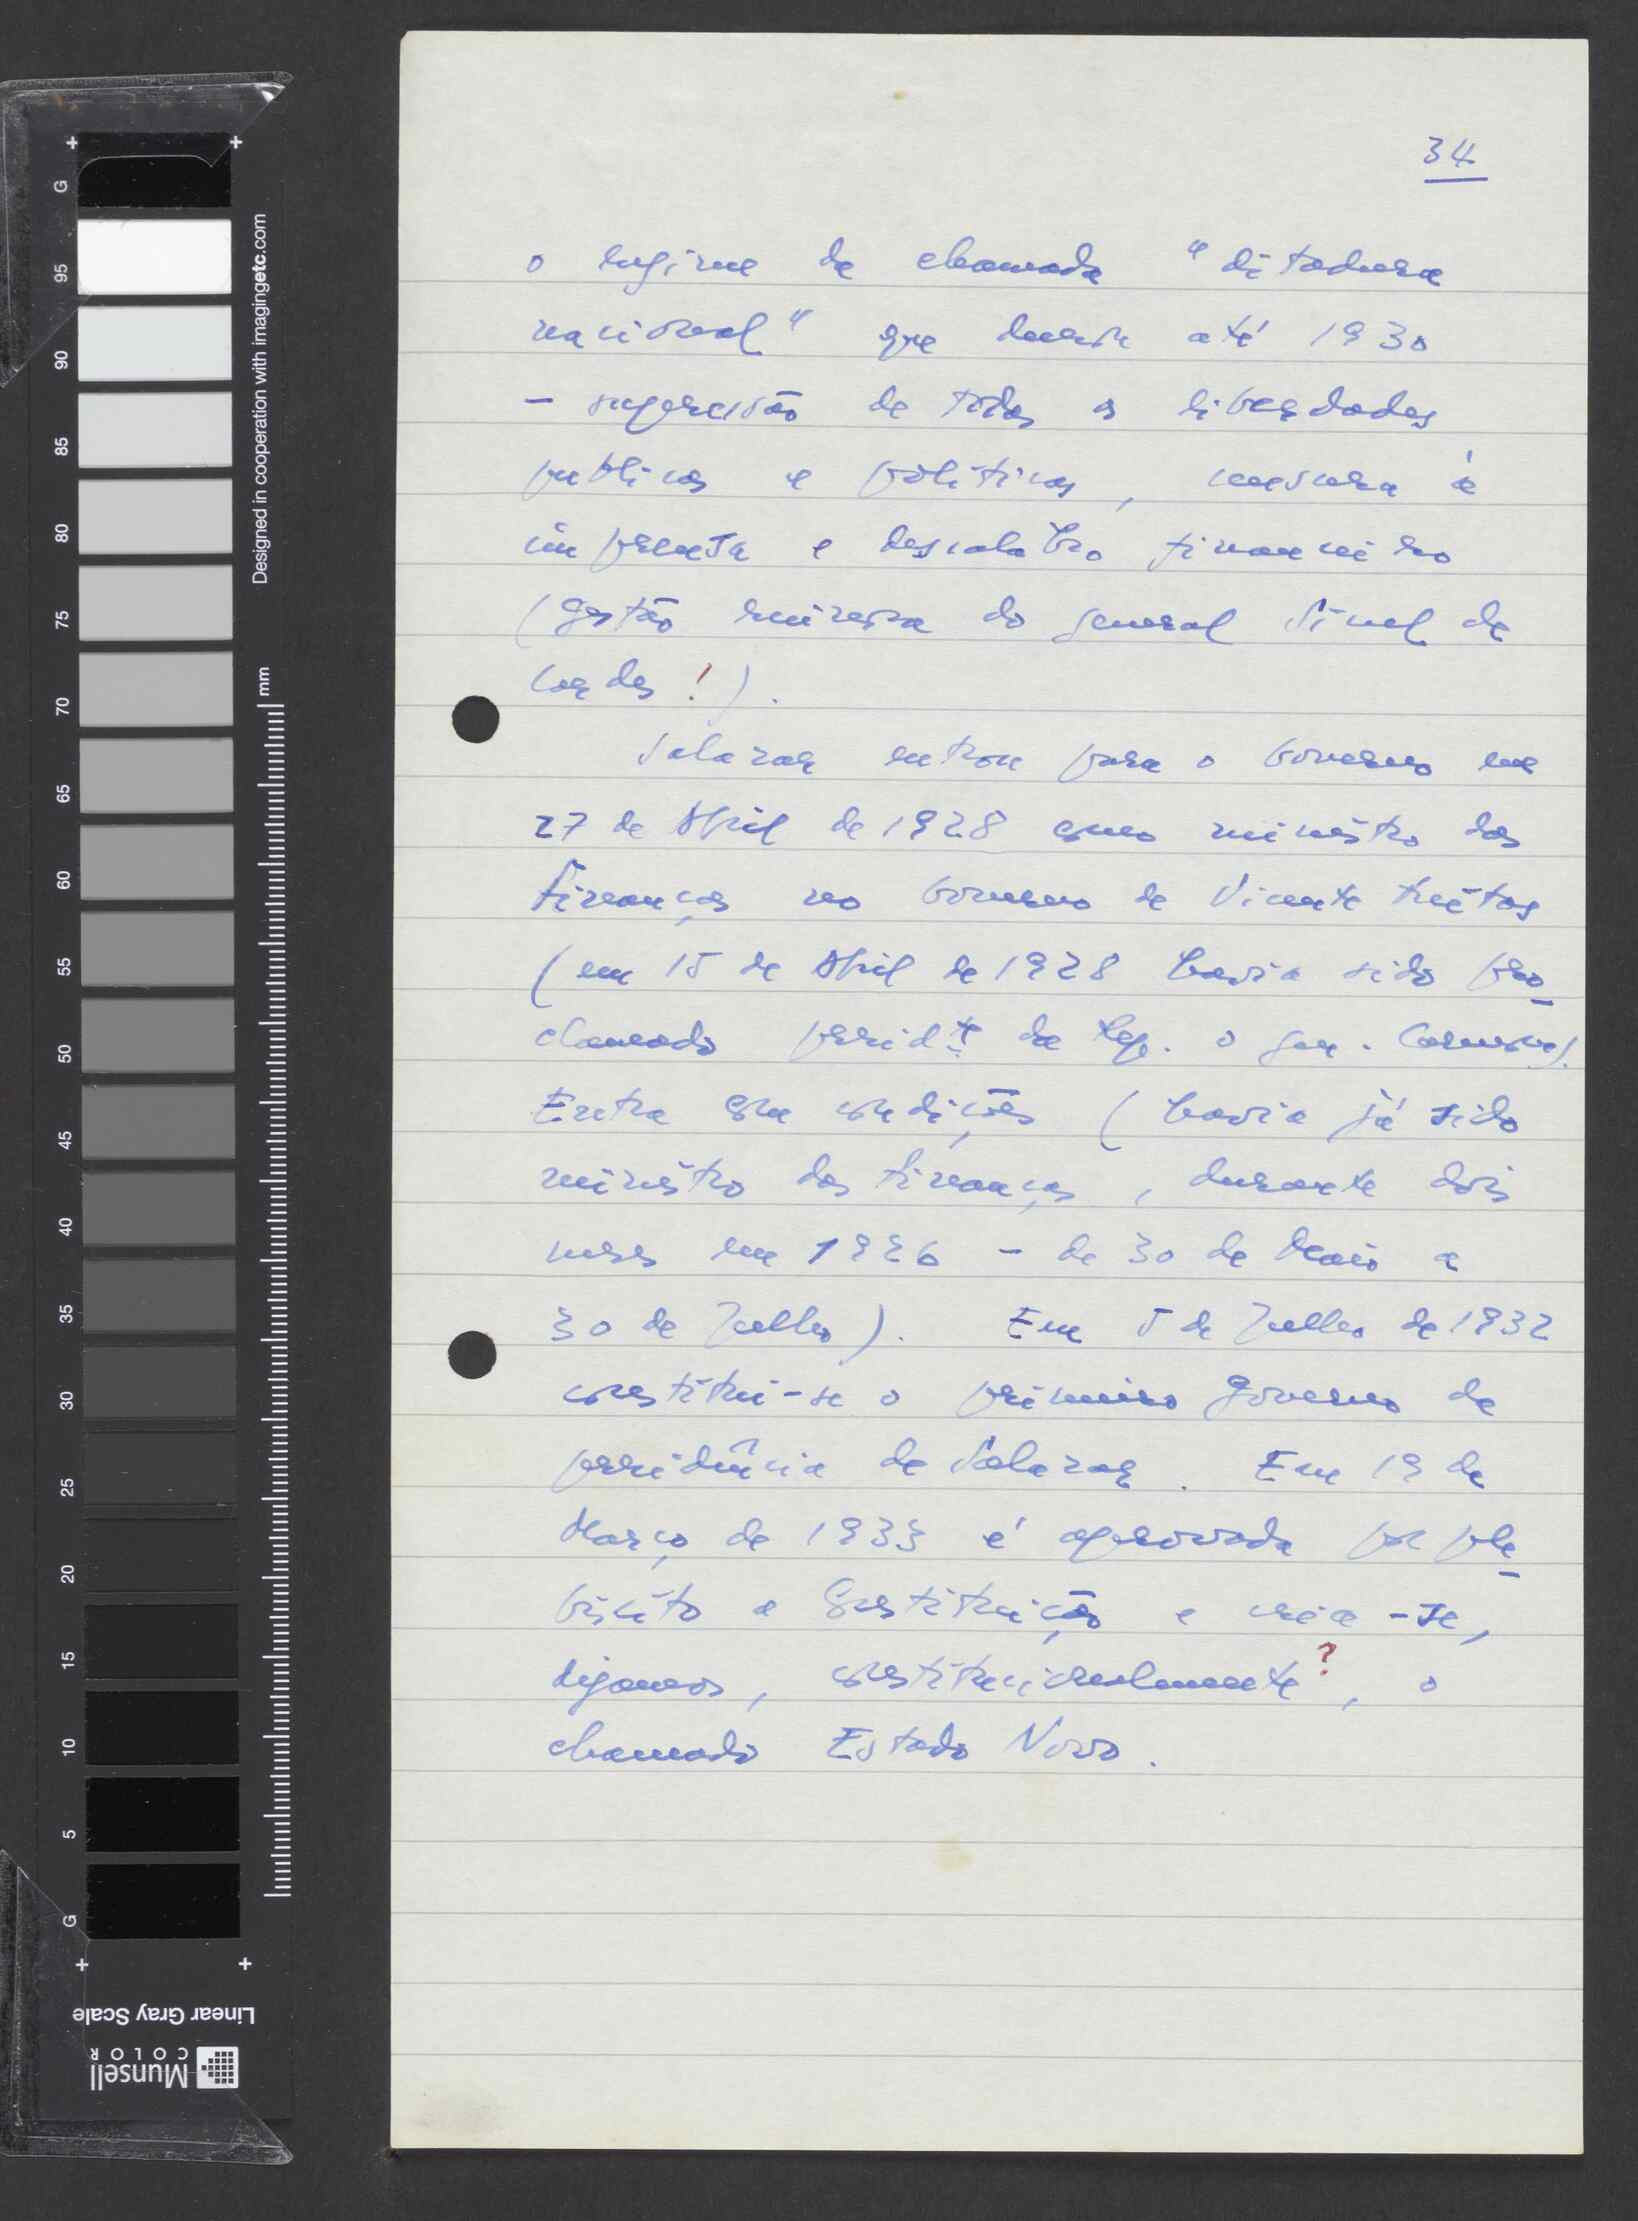 34
o regime da chamada "ditadura
nacional" que durou até 1930
- supressão de todas as liberdades
publicas e politicas, censura à
imprensa e descalabro financeiro
(gestão ruinosa do general Sinel de
Cordes!).
Salazar entrou para o Governo em
27 de Abril de 1928 como ministro das
Finanças no Governo de Vicente Freitas
(em 15 de Abril de 1928 havia sido pro-
clamado presidte da Rep. o gen. Carmona).
Entra com condições (havia já sido
ministro das Finanças, durante dois
meses em 1926 - de 30 de Maio a
30 de Julho). Em 5 de Julho de 1932
constitui-se o primeiro governo da
presidência de Salazar. Em 19 de
Março de 1933 é aprovada por ple-
biscito a Constituição e cria-se,
digamos, constitucionalmente?, o
chamado Estado Novo.
G
95
90
85
80
75
70
65
60
55
50
45
40
35
30
25
20
15
10
5
G
mm
Designed in cooperation with imagingetc.com
Linear Gray Scale
Munsell
COLOR